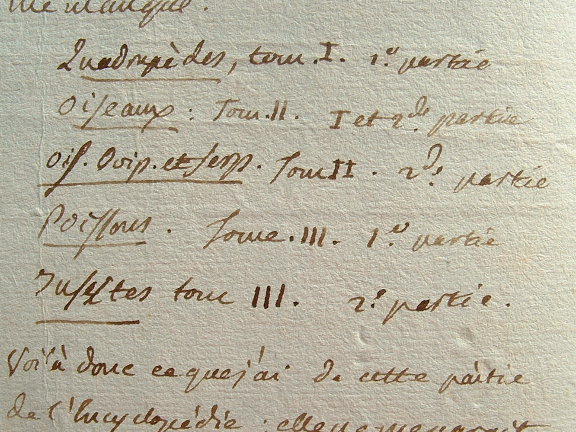 me manque.
Quadrupèdes, tom. I. 1.e partie
Oiseaux : Tom. II. I et 2.de partie
Ois. Ovip. et serp. Tom II. 2.de partie
Poissons. Tome. III. 1.e partie
Insectes tom III. 2.e partie.
Voilà donc ce que j'ai de cette partie
de l'Encyclopédie : elle